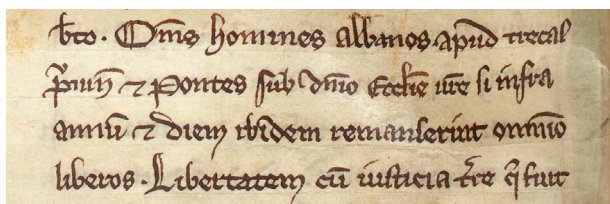 b̅to . Om̅s homines albanos apud trecas
p̃unı̅ ⁊ Pontes sub dn̅io Eccle̅ ur̅e si infra
annu̅ ⁊ diem ibidem remanserint omnio
liberos . Libertatem cu̅ iusticia t̅re q̅ fuit